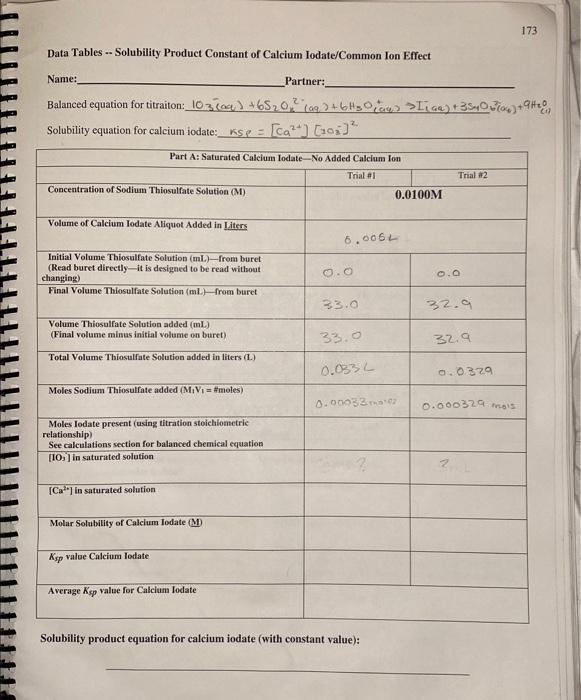 173
Data Tables -- Solubility Product Constant of Calcium Iodate/Common Ion Effect
Name: Partner:
Balanced equation for titraiton: IO3⁻(aq) + 6S2O3²⁻(aq) + 6H3O⁺(aq) → I⁻(aq) + 3S4O6²⁻(aq) + 9H2O(l)
Solubility equation for calcium iodate: Ksp = [Ca²⁺] [IO3⁻]²
Part A: Saturated Calcium Iodate—No Added Calcium Ion
Trial #1 Trial #2
Concentration of Sodium Thiosulfate Solution (M) 0.0100M
Volume of Calcium Iodate Aliquot Added in Liters 0.005L
Initial Volume Thiosulfate Solution (mL)—from buret
(Read buret directly—it is designed to be read without
changing) 0.0 0.0
Final Volume Thiosulfate Solution (mL)—from buret
33.0 32.9
Volume Thiosulfate Solution added (mL)
(Final volume minus initial volume on buret) 33.0 32.9
Total Volume Thiosulfate Solution added in liters (L)
0.033L 0.0329
Moles Sodium Thiosulfate added (M₁V₁ = #moles)
0.00033 moles 0.000329 mols
Moles Iodate present (using titration stoichiometric
relationship)
See calculations section for balanced chemical equation
[IO₃⁻] in saturated solution
? ?
[Ca²⁺] in saturated solution
Molar Solubility of Calcium Iodate (M)
Ksp value Calcium Iodate
Average Ksp value for Calcium Iodate
Solubility product equation for calcium iodate (with constant value):